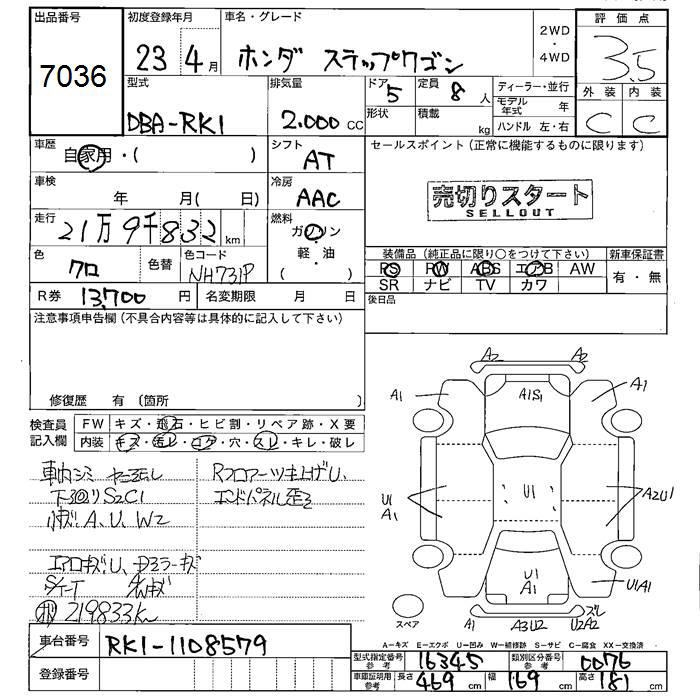 出品番号
7036
初度登録年月
23 4月
車名・グレード
ホンダ ステップワゴン
2WD
・
4WD
評価点
3.5
外装 内装
C C
型式
DBA-RK1
排気量
2.000 CC
ドア
5
形状
定員
8 人
積載
kg
ディーラー・並行
モデル年式 年
ハンドル 左・右
車歴
自家用・( )
シフト
AT
セールスポイント(正常に機能するものに限ります)
売切りスタート
SELLOUT
車検
年 月( 日)
冷房
AAC
走行
21万9千832 km
燃料
ガソリン
軽・油
( )
色
クロ
色替
色コード
NH731P
装備品(純正品に限り○をつけて下さい)
PS PW ABS エアB AW
SR ナビ TV カワ
新車保証書
有・無
R券 13,700 円
名変期限 月 日
後日品
注意事項申告欄(不具合内容等は具体的に記入して下さい)
修復歴 有 〔箇所
検査員記入欄
FW キズ・飛石・ヒビ割・リペア跡・X要
内装 キズ・汚レ・コゲ・穴・スレ・キレ・破レ
車内シミ
下回りS2C1
小キズ A、U、W2
エアロキズU、Dミラーキズ
S/T-T
219833km
Rフロアーツキ上げU、
エンドパネル歪2
A2 A2
A1 A1S1 A1
U1
A1
U1
A2U1
U1
A1
U1A1
スペア
A1 A3U2 U2A2
ズレ
A-キズ E-エクボ U-凹み W-補修跡 S-サビ C-腐食 XX-交換済
車台番号
RK1-1108579
登録番号
型式指定番号 参考 16345
類別区分番号 参考 0076
車庫証明用 参考 長さ 469 cm 幅 169 cm 高さ 181 cm